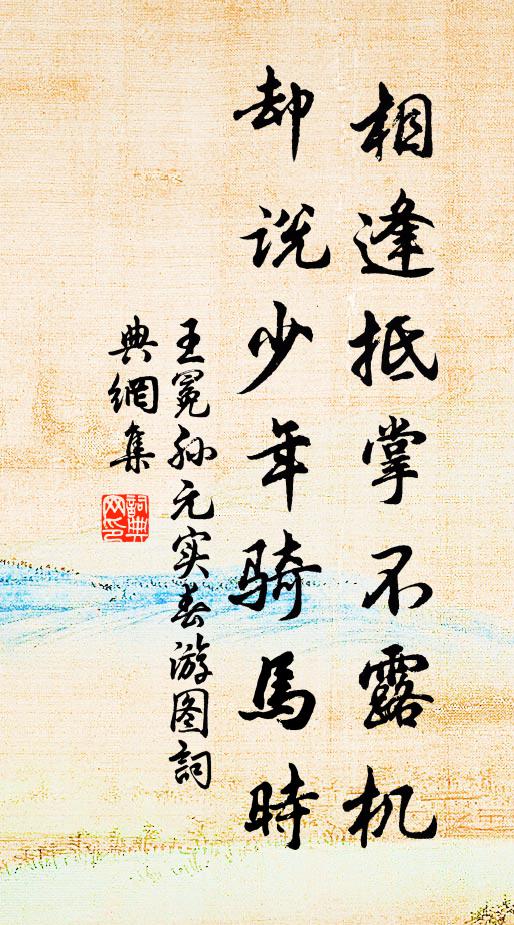 相逢抵掌不露机
却说少年骑馬時
王冕孙元实春游图詞
典網集
詞典網印